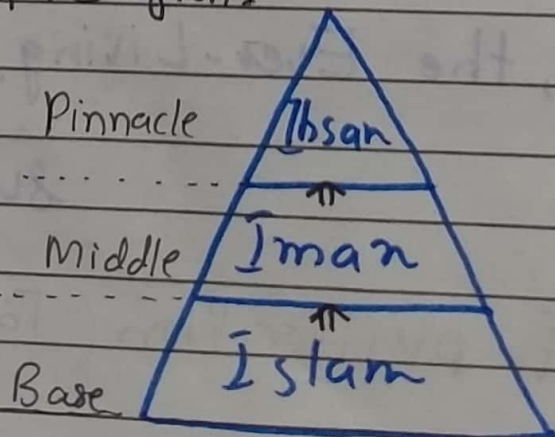 Pinnacle Ihsan
Middle Iman
Base Islam